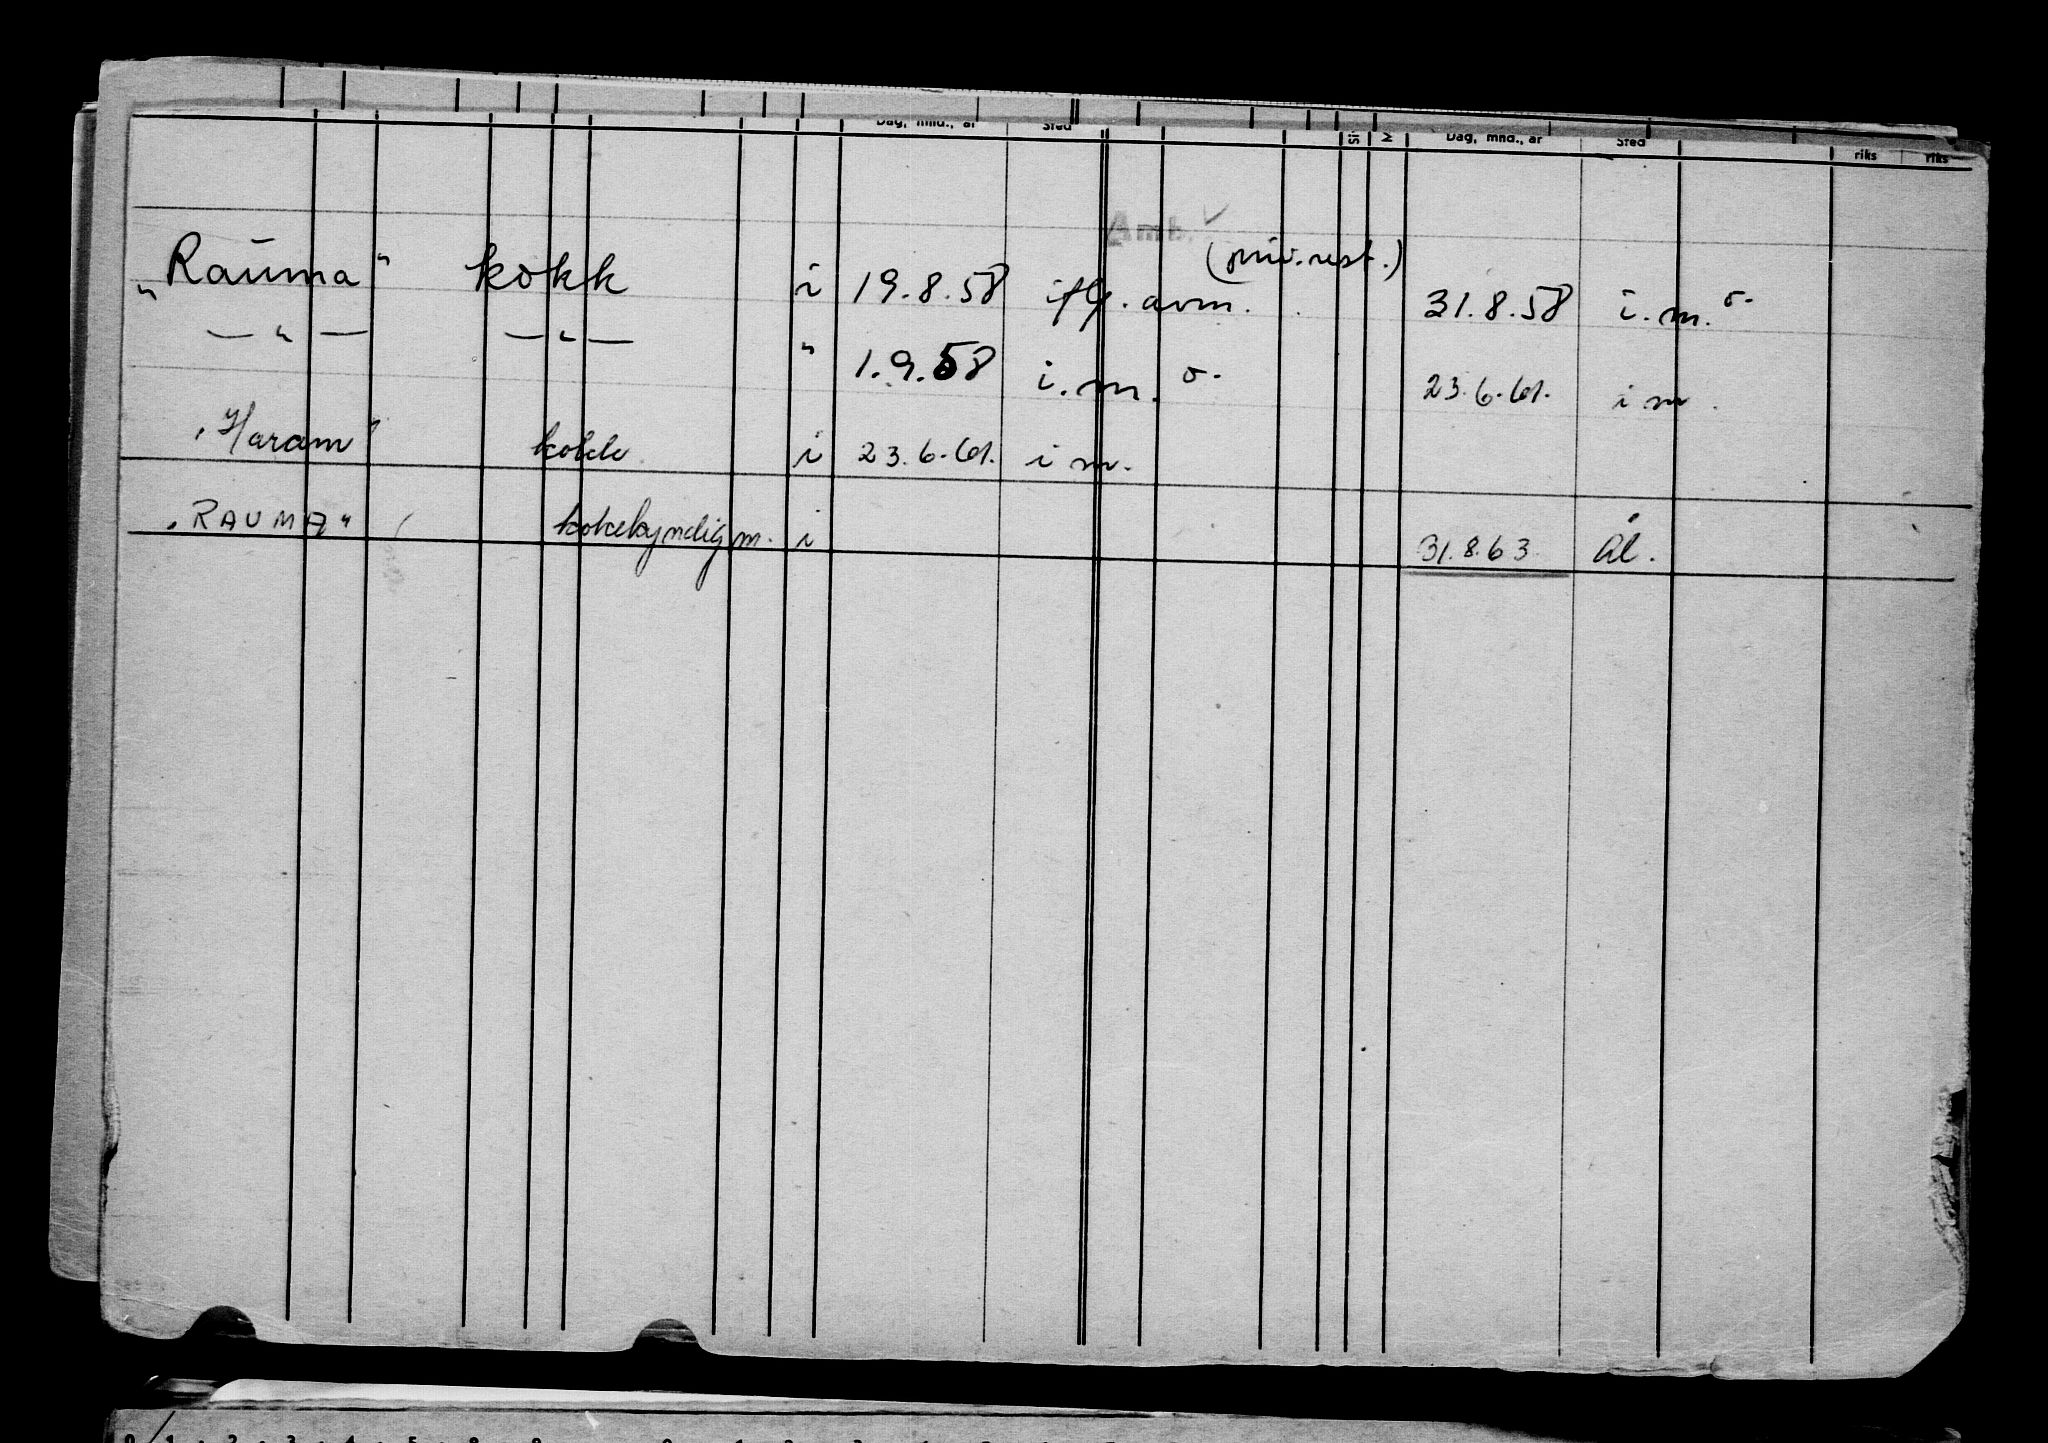 Dag, mnd., år Sted Dag, mnd., år Sted riks riks
Amb.
(priv.rest.)
„Rauma“ kokk i 19.8.58 iflg. avm. 31.8.58 i.m.o.
—„— —„— " 1.9.58 i.m.o. 23.6.61. i m.
„Haram" kokk i 23.6.61. i m.
„RAUMA“ kokekyndig m. i 31.8.63. Ål.